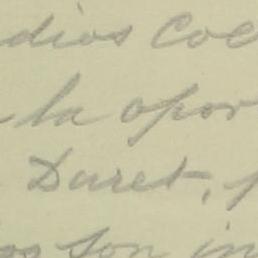 dios Coe
la opor
Duret,
os son in